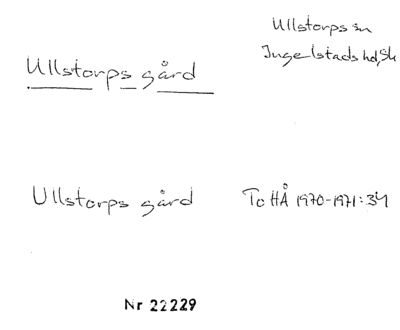 Ullstorps sn
Ullstorps gård
Ingelstads hd, Sk
Ullstorps gård To HÅ 1970-1971:34
Nr 22229